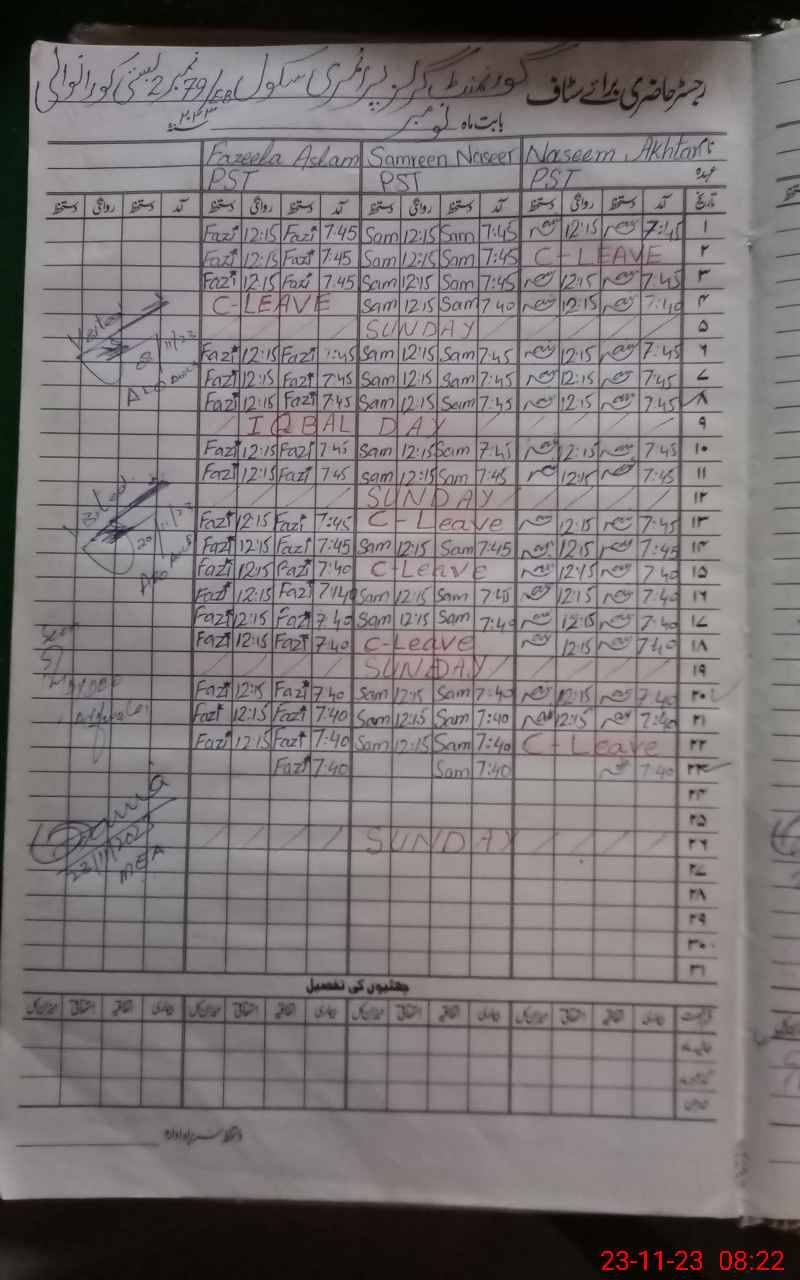 رجسٹر حاضری برائے سٹاف گورنمنٹ گرلز پرائمری سکول نمبر 2 79/EB بستی
بابت ماہ نومبر ۲۰۲۳ء
Fazeela Aslam Samreen Naseer Naseem Akhtar
PST PST PST عہدہ
دستخط روانگی دستخط آمد دستخط روانگی دستخط آمد دستخط روانگی دستخط آمد دستخط روانگی دستخط آمد تاریخ
Fazi 12:15 Fazi 7:45 Sam 12:15 Sam 7:45 نسیم 12:15 نسیم 7:45 ۱
Fazi 12:15 Fazi 7:45 Sam 12:15 Sam 7:45 C-LEAVE ۲
Fazi 12:15 Fazi 7:45 Sam 12:15 Sam 7:45 نسیم 12:15 نسیم 7:45 ۳
C-LEAVE Sam 12:15 Sam 7:40 نسیم 12:15 نسیم 7:40 ۴
SUNDAY ۵
Fazi 12:15 Fazi 7:45 Sam 12:15 Sam 7:45 نسیم 12:15 نسیم 7:45 ۶
Fazi 12:15 Fazi 7:45 Sam 12:15 Sam 7:45 نسیم 12:15 نسیم 7:45 ۷
Fazi 12:15 Fazi 7:45 Sam 12:15 Sam 7:45 نسیم 12:15 نسیم 7:45 ۸
IQBAL DAY ۹
Fazi 12:15 Fazi 7:45 Sam 12:15 Sam 7:45 نسیم 12:15 نسیم 7:45 ۱۰
Fazi 12:15 Fazi 7:45 Sam 12:15 Sam 7:45 نسیم 12:15 نسیم 7:45 ۱۱
SUNDAY ۱۲
Fazi 12:15 Fazi 7:45 C-Leave نسیم 12:15 نسیم 7:45 ۱۳
Fazi 12:15 Fazi 7:45 Sam 12:15 Sam 7:45 نسیم 12:15 نسیم 7:45 ۱۴
Fazi 12:15 Fazi 7:40 C-Leave نسیم 12:15 نسیم 7:40 ۱۵
Fazi 12:15 Fazi 7:40 Sam 12:15 Sam 7:45 نسیم 12:15 نسیم 7:40 ۱۶
Fazi 12:15 Fazi 7:40 Sam 12:15 Sam 7:40 نسیم 12:15 نسیم 7:40 ۱۷
Fazi 12:15 Fazi 7:40 C-Leave نسیم 12:15 نسیم 7:40 ۱۸
SUNDAY ۱۹
Fazi 12:15 Fazi 7:40 Sam 12:15 Sam 7:40 نسیم 12:15 نسیم 7:40 ۲۰
Fazi 12:15 Fazi 7:40 Sam 12:15 Sam 7:40 نسیم 12:15 نسیم 7:40 ۲۱
Fazi 12:15 Fazi 7:40 Sam 12:15 Sam 7:40 C-Leave ۲۲
Fazi 7:40 Sam 7:40 نسیم 7:40 ۲۳
۲۴
۲۵
SUNDAY ۲۶
۲۷
۲۸
۲۹
۳۰
۳۱
22/11/2023
MEA
چھٹیوں کی تفصیل
23-11-23 08:22